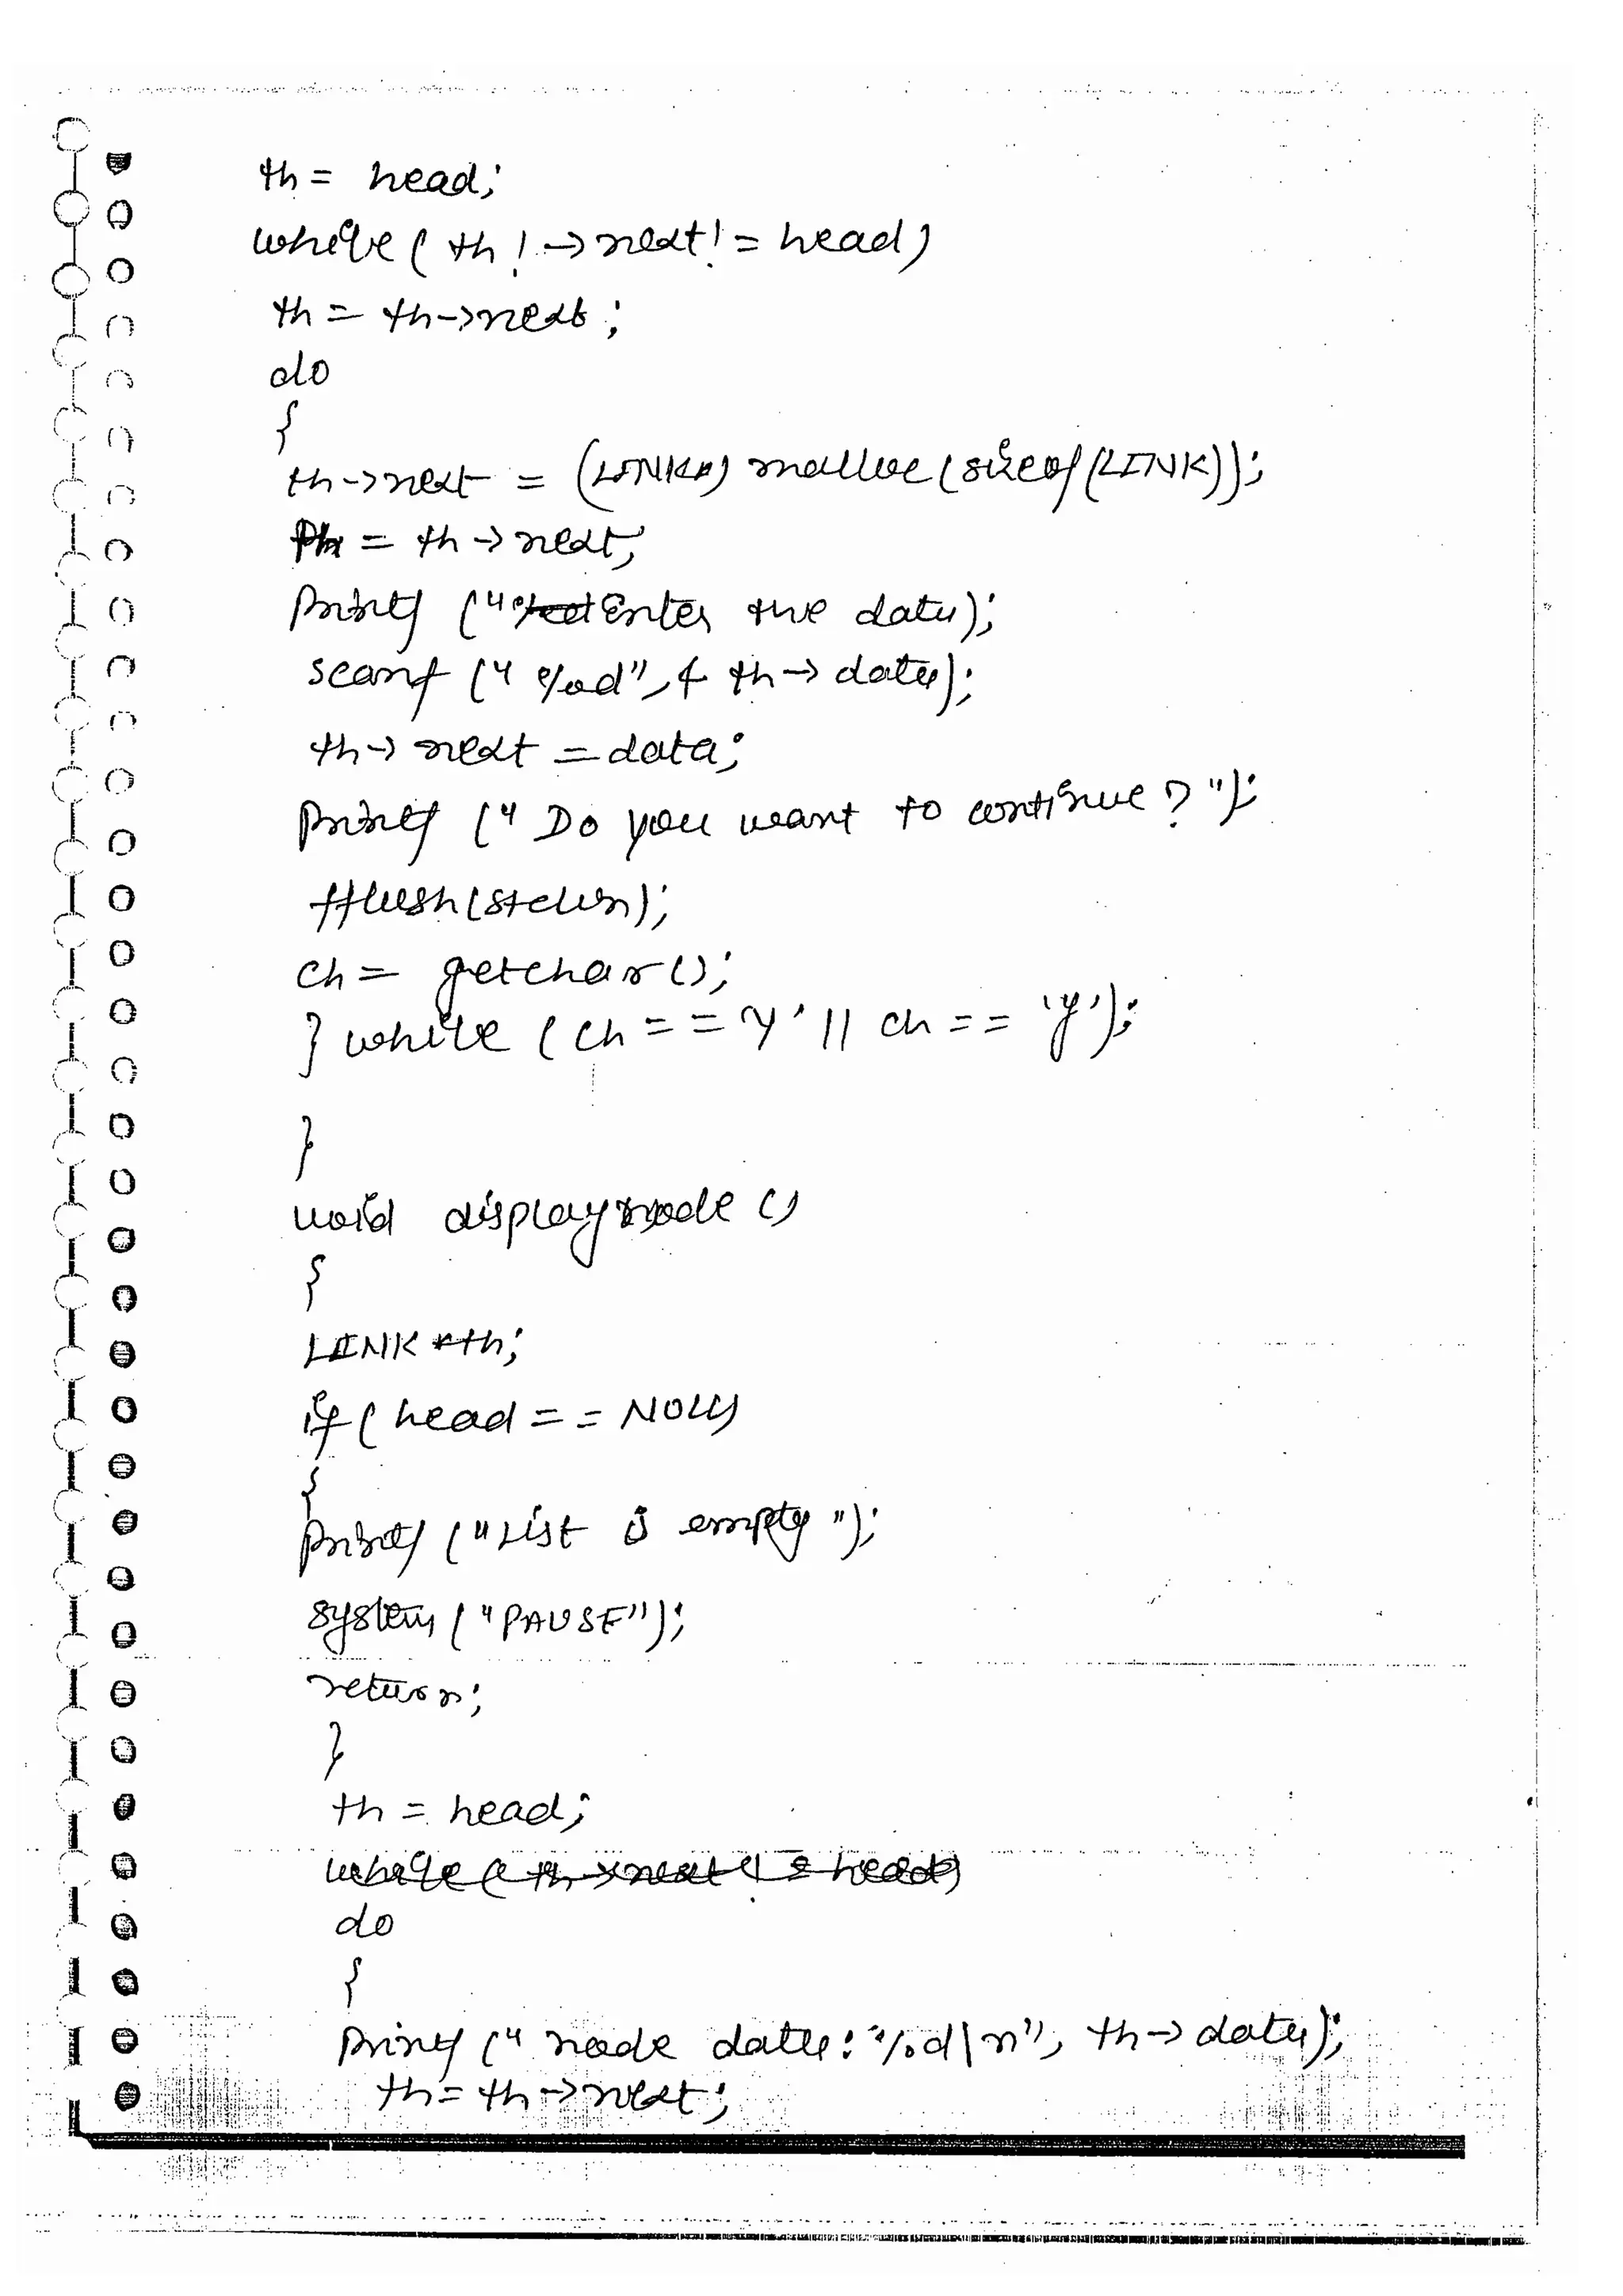 th = head;
while ( th ! -> next! = head)
th = th->next ;
do
{
th->next = (LINK*) malloc (sizeof (LINK));
th = th -> next;
printf (" Enter the data);
scanf (" %d", & th -> data);
th-> next = data;
printf (" Do you want to continue ? ");
fflush (stdin);
ch = getchar ();
} while ( ch == 'Y' || ch == 'y');
}
void displaynode ()
{
LINK *th;
if ( head == NULL)
{
printf (" List is empty ");
system (" PAUSE");
return;
}
th = head;
while ( th -> next ! = head)
do
{
printf (" node data: %d\n", th-> data);
th = th -> next;